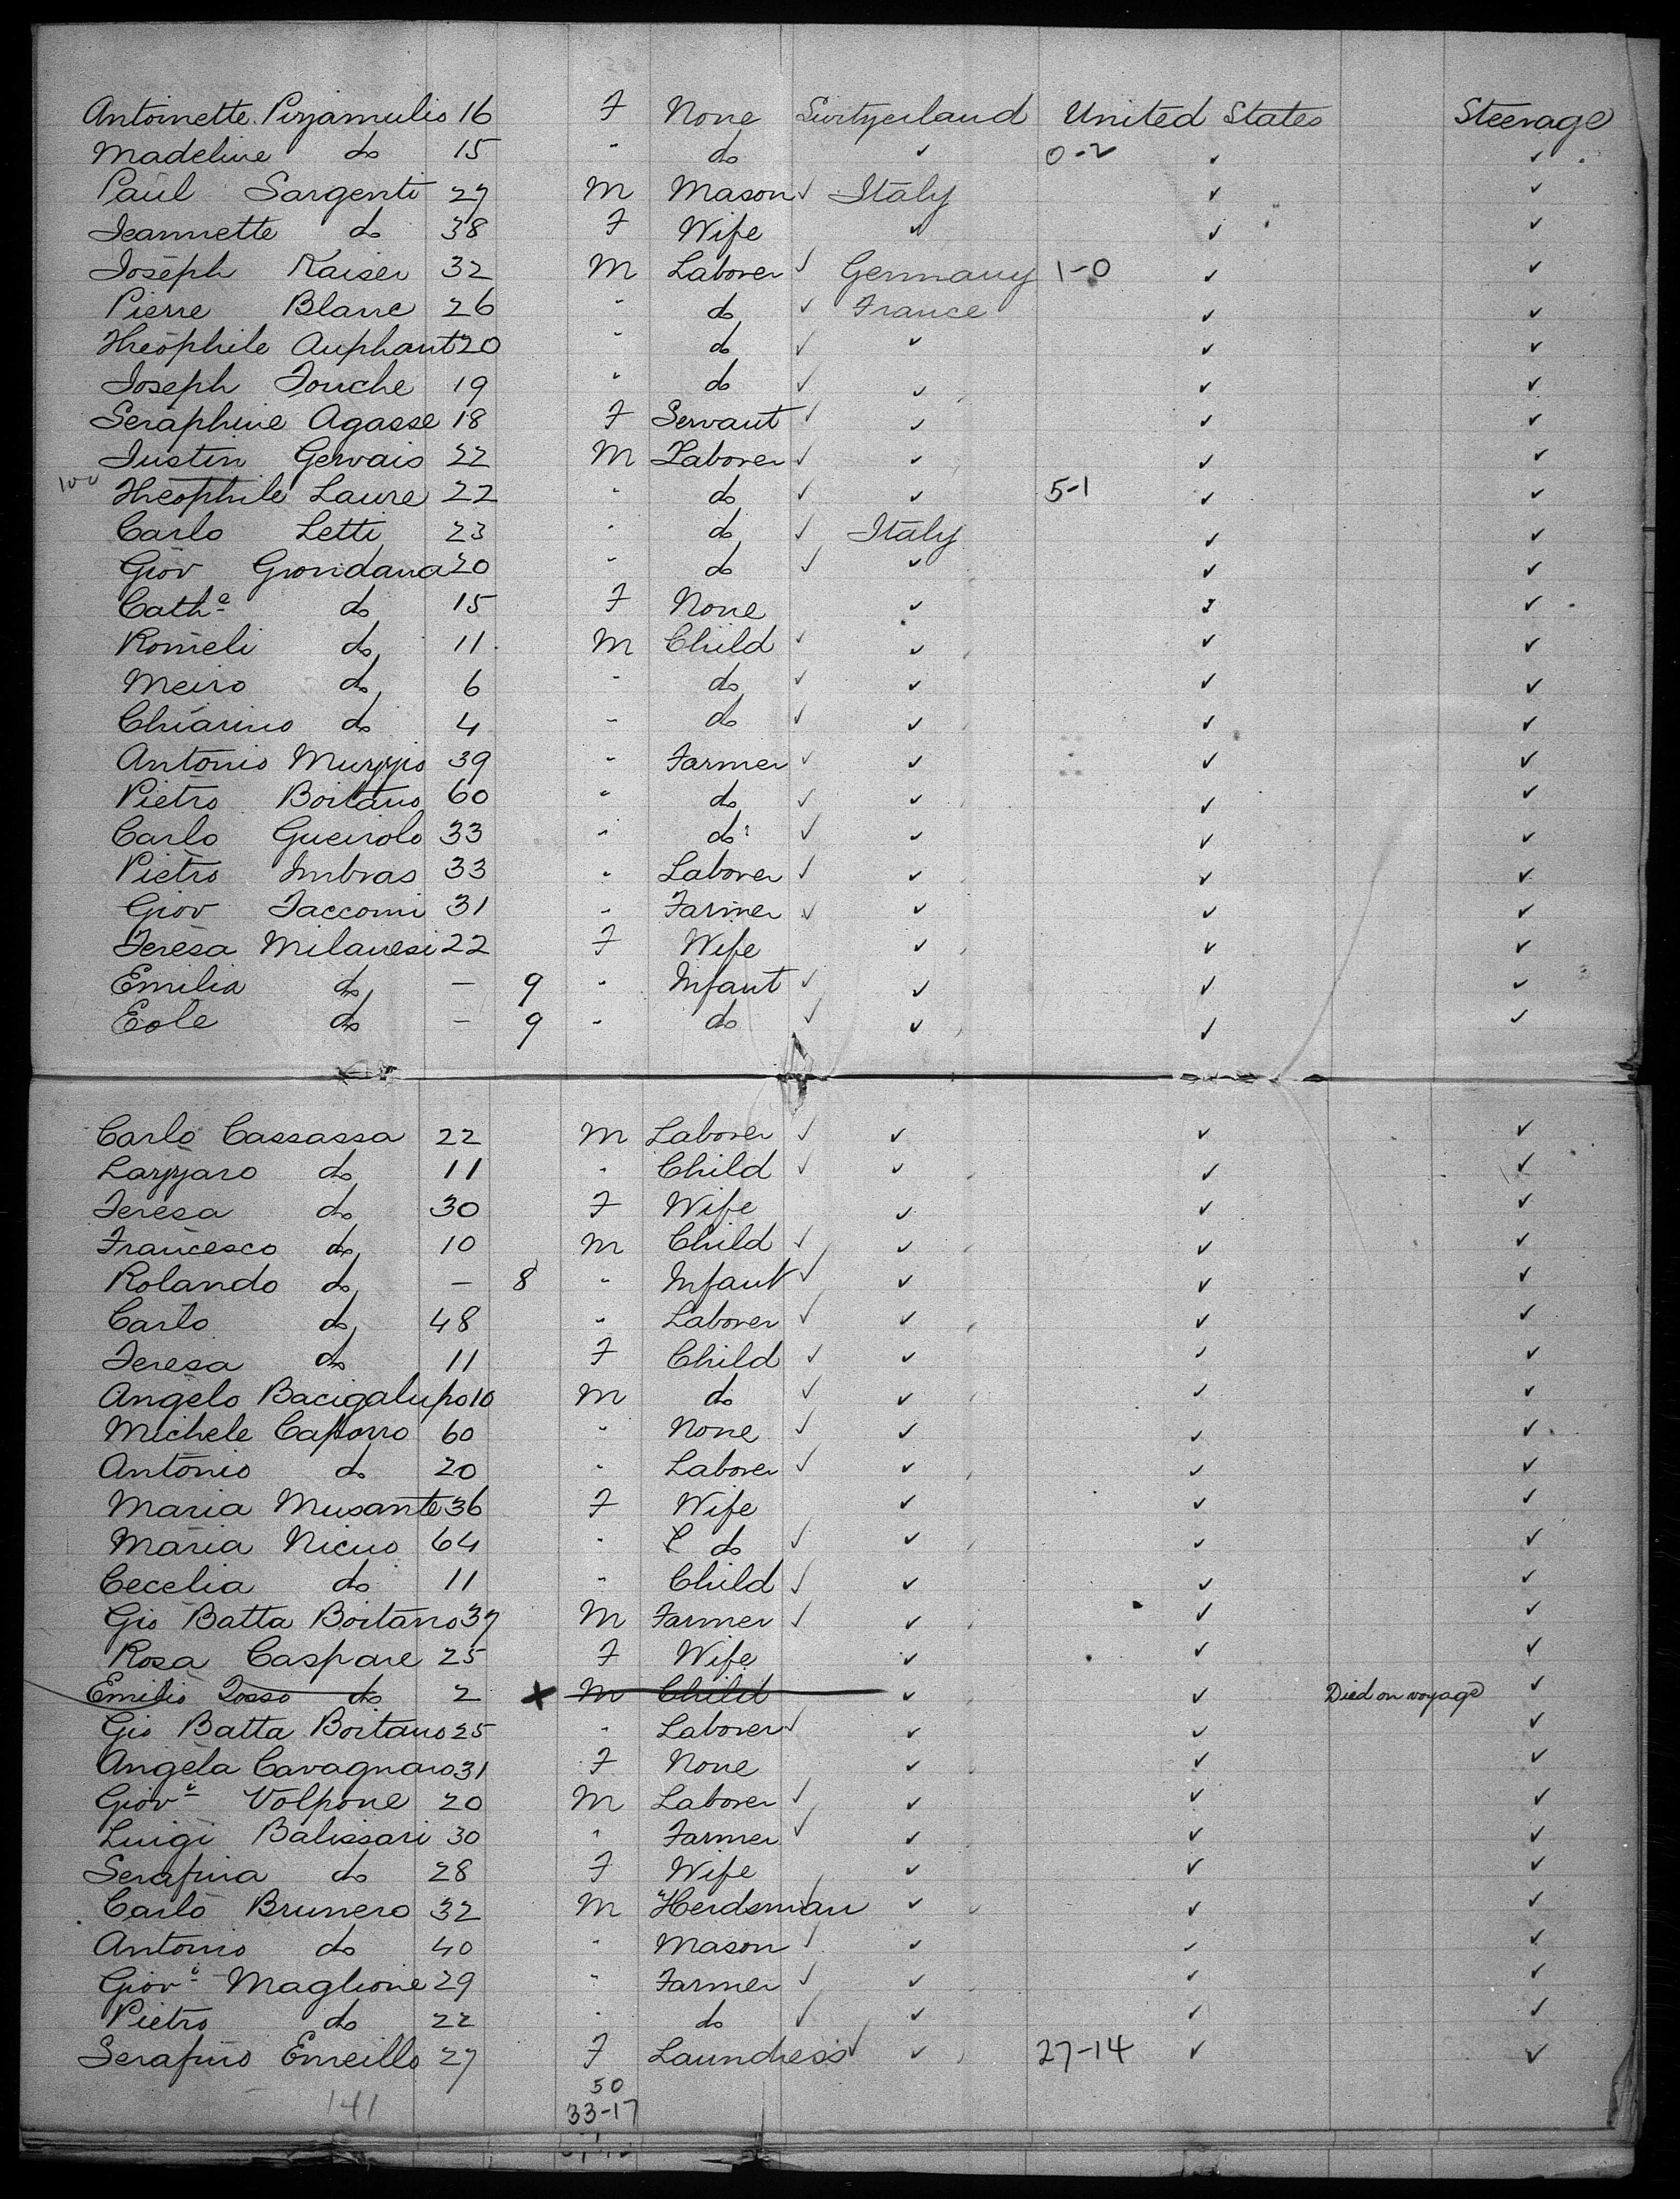 Antoinette Pizzamulio 16 F None Switzerland United States Steerage
Madeline do 15 " do ✓ 0-2 ✓ ✓
Paul Sargenti 27 M Mason ✓ Italy ✓ ✓
Jeannette do 38 F Wife ✓ ✓ ✓
Joseph Kaiser 32 M Laborer ✓ Germany 1-0 ✓ ✓
Pierre Blanc 26 " do ✓ France ✓ ✓
Théophile Auphant 20 " do ✓ ✓ ✓ ✓
Joseph Fouche 19 " do ✓ ✓ ✓ ✓
Seraphine Agasse 18 F Servant ✓ ✓ ✓ ✓
Justin Gervais 22 M Laborer ✓ ✓ ✓ ✓
100 Théophile Laure 22 " do ✓ ✓ 5-1 ✓ ✓
Carlo Letti 23 " do ✓ Italy ✓ ✓
Giov Giordana 20 " do ✓ ✓ ✓ ✓
Catha do 15 F None ✓ ✓ ✓
Romeli do 11 M Child ✓ ✓ ✓ ✓
Meiro do 6 " do ✓ ✓ ✓ ✓
Chiarino do 4 " do ✓ ✓ ✓ ✓
Antonio Muzzio 39 " Farmer ✓ ✓ ✓ ✓
Pietro Boitano 60 " do ✓ ✓ ✓ ✓
Carlo Gueirolo 33 " do ✓ ✓ ✓ ✓
Pietro Imbras 33 " Laborer ✓ ✓ ✓ ✓
Giov Jacconi 31 " Farmer ✓ ✓ ✓ ✓
Teresa Milanesi 22 F Wife ✓ ✓ ✓
Emilia do — 9 " Infant ✓ ✓ ✓ ✓
Eole do — 9 " do ✓ ✓ ✓ ✓
Carlo Cassassa 22 M Laborer ✓ ✓ ✓ ✓
Lazzaro do 11 " Child ✓ ✓ ✓ ✓
Teresa do 30 F Wife ✓ ✓ ✓
Francesco do 10 M Child ✓ ✓ ✓ ✓
Rolando do — 8 " Infant ✓ ✓ ✓ ✓
Carlo do 48 " Laborer ✓ ✓ ✓ ✓
Teresa do 11 F Child ✓ ✓ ✓ ✓
Angelo Bacigalupo 10 M do ✓ ✓ ✓ ✓
Michele Caporro 60 " None ✓ ✓ ✓ ✓
Antonio do 20 " Laborer ✓ ✓ ✓ ✓
Maria Musante 36 F Wife ✓ ✓ ✓
Maria Nicino 64 " do ✓ ✓ ✓ ✓
Cecelia do 11 " Child ✓ ✓ ✓ ✓
Gio Batta Boitano 37 M Farmer ✓ ✓ ✓ ✓
Rosa Caspare 25 F Wife ✓ ✓ ✓
Emilio do 2 X M Child ✓ ✓ Died on voyage ✓
Gio Batta Boitano 25 " Laborer ✓ ✓ ✓ ✓
Angela Cavagnaro 31 F None ✓ ✓ ✓
Giovi Volpone 20 M Laborer ✓ ✓ ✓ ✓
Luigi Balissari 30 " Farmer ✓ ✓ ✓ ✓
Serafina do 28 F Wife ✓ ✓ ✓
Carlo Brunero 32 M Herdsman ✓ ✓ ✓
Antonio do 40 " Mason ✓ ✓ ✓ ✓
Giovi Maglione 29 " Farmer ✓ ✓ ✓ ✓
Pietro do 22 " do ✓ ✓ ✓ ✓
Serafino 27 F Laundress ✓ ✓ 27-14 ✓ ✓
50
141 33-17